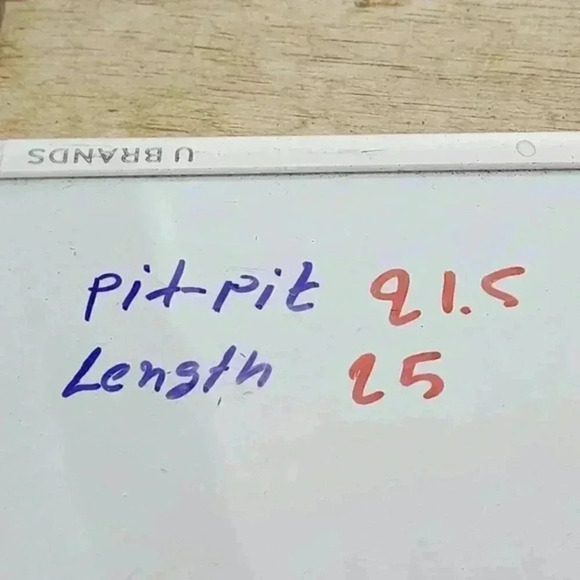 U BRANDS
pit-pit 21.5
Length 25